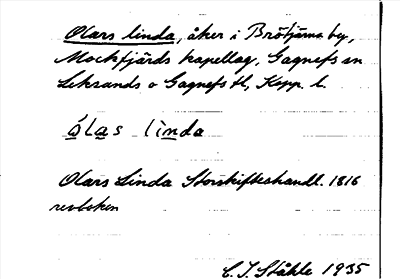 Olars linda, åker i Brötjärna by,
Mockfjärds kapellag, Gagnefs sn
Leksands o Gagnefs tl, Kopp. l.
ólas lìnda
Olars Linda Storskifteshandl. 1816
C. I. Ståhle 1935